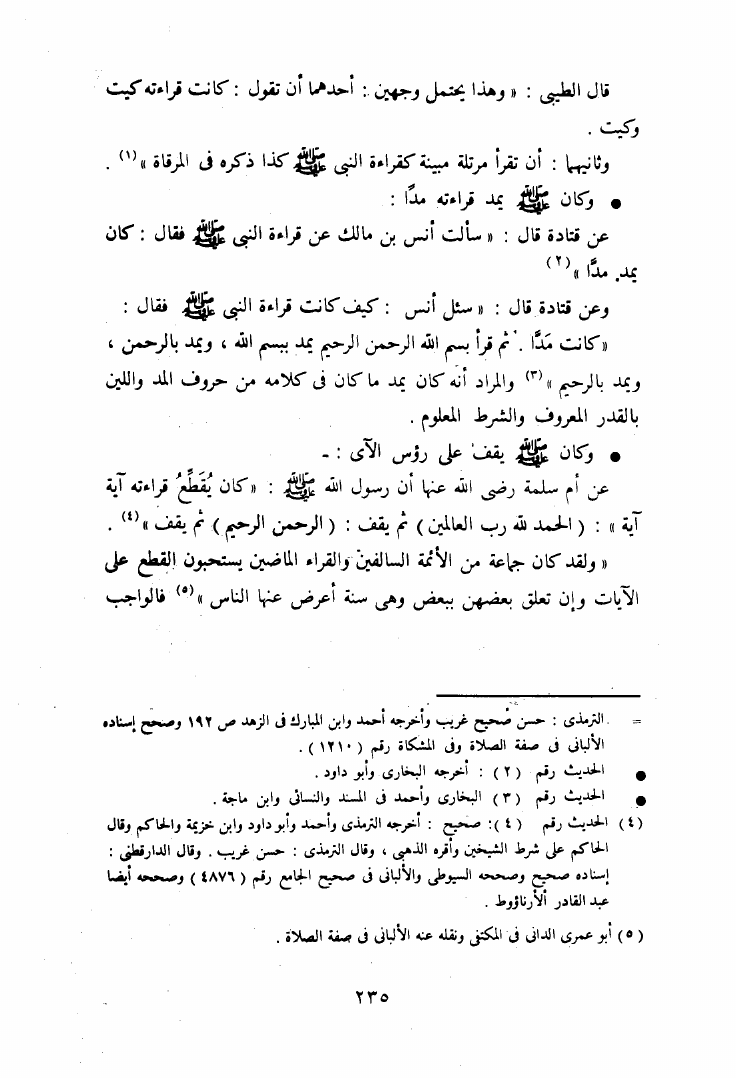 قال الطيبى : « وهذا يحتمل وجهين : أحدهما أن تقول : كانت قراءته كيت
وكيت .
وثانيهما : أن تقرأ مرتلة مبينة كقراءة النبى ﷺ كذا ذكره فى المرقاة »(١) .
● وكان ﷺ يمد قراءته مدًّا :
عن قتادة قال : « سألت أنس بن مالك عن قراءة النبى ﷺ فقال : كان
يمد مدًّا »(٢)
وعن قتادة قال : « سئل أنس : كيف كانت قراءة النبى ﷺ فقال :
«كانت مَدًّا . ثم قرأ بسم الله الرحمن الرحيم يمد ببسم الله ، ويمد بالرحمن ،
ويمد بالرحيم »(٣) والمراد أنه كان يمد ما كان فى كلامه من حروف المد واللين
بالقدر المعروف والشرط المعلوم .
● وكان ﷺ يقف على رؤس الآى : ـ
عن أم سلمة رضى الله عنها أن رسول الله ﷺ : «كان يُقَطِّعُ قراءته آية
آية » : ( الحمد لله رب العالمين ) ثم يقف : ( الرحمن الرحيم ) ثم يقف »(٤) .
« ولقد كان جماعة من الأئمة السالفين والقراء الماضين يستحبون القطع على
الآيات وإن تعلق بعضهن ببعض وهى سنة أعرض عنها الناس »(٥) فالواجب
= الترمذى : حسن صحيح غريب وأخرجه أحمد وابن المبارك فى الزهد ص ١٩٢ وصحح إسناده
الألبانى فى صفة الصلاة وفى المشكاة رقم ( ١٢١٠ ) .
● الحديث رقم ( ٢ ) : أخرجه البخارى وأبو داود .
● الحديث رقم ( ٣ ) البخارى وأحمد فى المسند والنسائى وابن ماجة .
(٤) الحديث رقم ( ٤ ): صحيح : أخرجه الترمذى وأحمد وأبو داود وابن خزيمة والحاكم وقال
الحاكم على شرط الشيخين وأقره الذهبى ، وقال الترمذى : حسن غريب . وقال الدارقطنى :
إسناده صحيح وصححه السيوطى والألبانى فى صحيح الجامع رقم ( ٤٨٧٦ ) وصححه أيضا
عبد القادر الأرناؤوط .
( ٥ ) أبو عمرى الدانى فى المكتفى ونقله عنه الألبانى فى صفة الصلاة .
٢٣٥